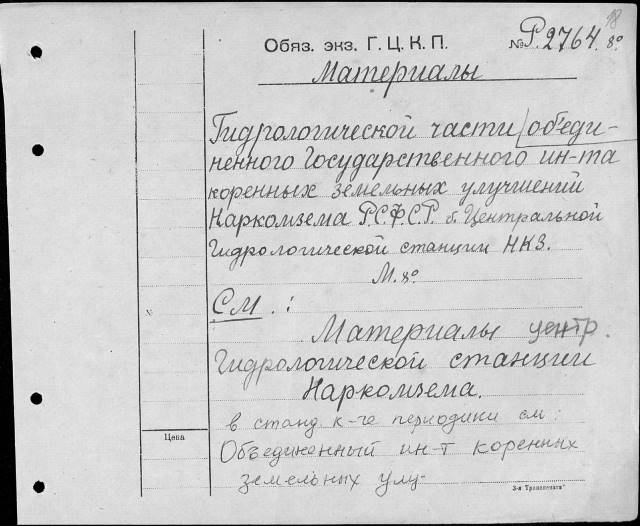 18
Обяз. экз. Г. Ц. К. П. № Р.2764. 8º
Материалы
Гидрологической части объеди-
ненного Государственного ин-та
коренных земельных улучшений
Наркомзема Р.С.Ф.С.Р. б. Центральной
Гидрологической станции НКЗ.
М. 8º
См. :
Материалы центр.
Гидрологической станции
Наркомзема.
в станд. к-ге периодики см:
Цена
Объединенный ин-т коренных
земельных улу-
3-я Транспечать